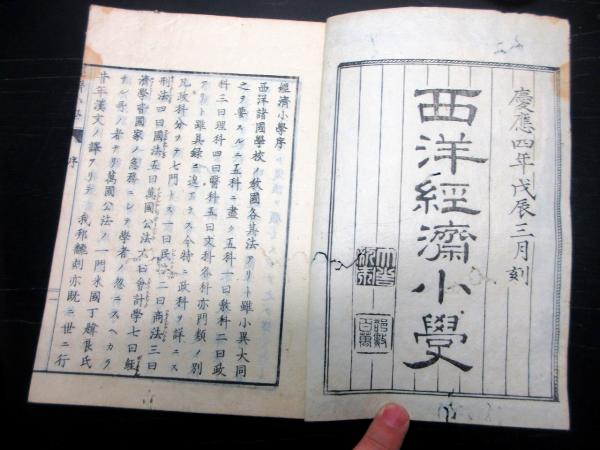 慶應四年戊辰三月刻
西洋經濟小學
經濟小學序
西洋諸國學校ノ教國各其法アリト雖小異大同
之ヲ要スルニ五科ニ盡ク五科一曰敎科二曰政
科三曰理科四曰醫科五曰文科各科亦門類ノ別
アリト雖具録ニ遑アラス今特ニ政科ヲ詳ニス
凡政科分ツテ七門トス一曰民法二曰商法三曰
刑法四曰國法五曰萬國公法六曰會計學七曰經
濟學皆國家ノ急務ニシテ學者ノ忽ニスヘカラ
サル所ノ者ナリ萬國公法ノ一門米國丁韙良氏
廿年漢文ノ譯アリ 我邦飜刻亦既ニ世ニ行
序